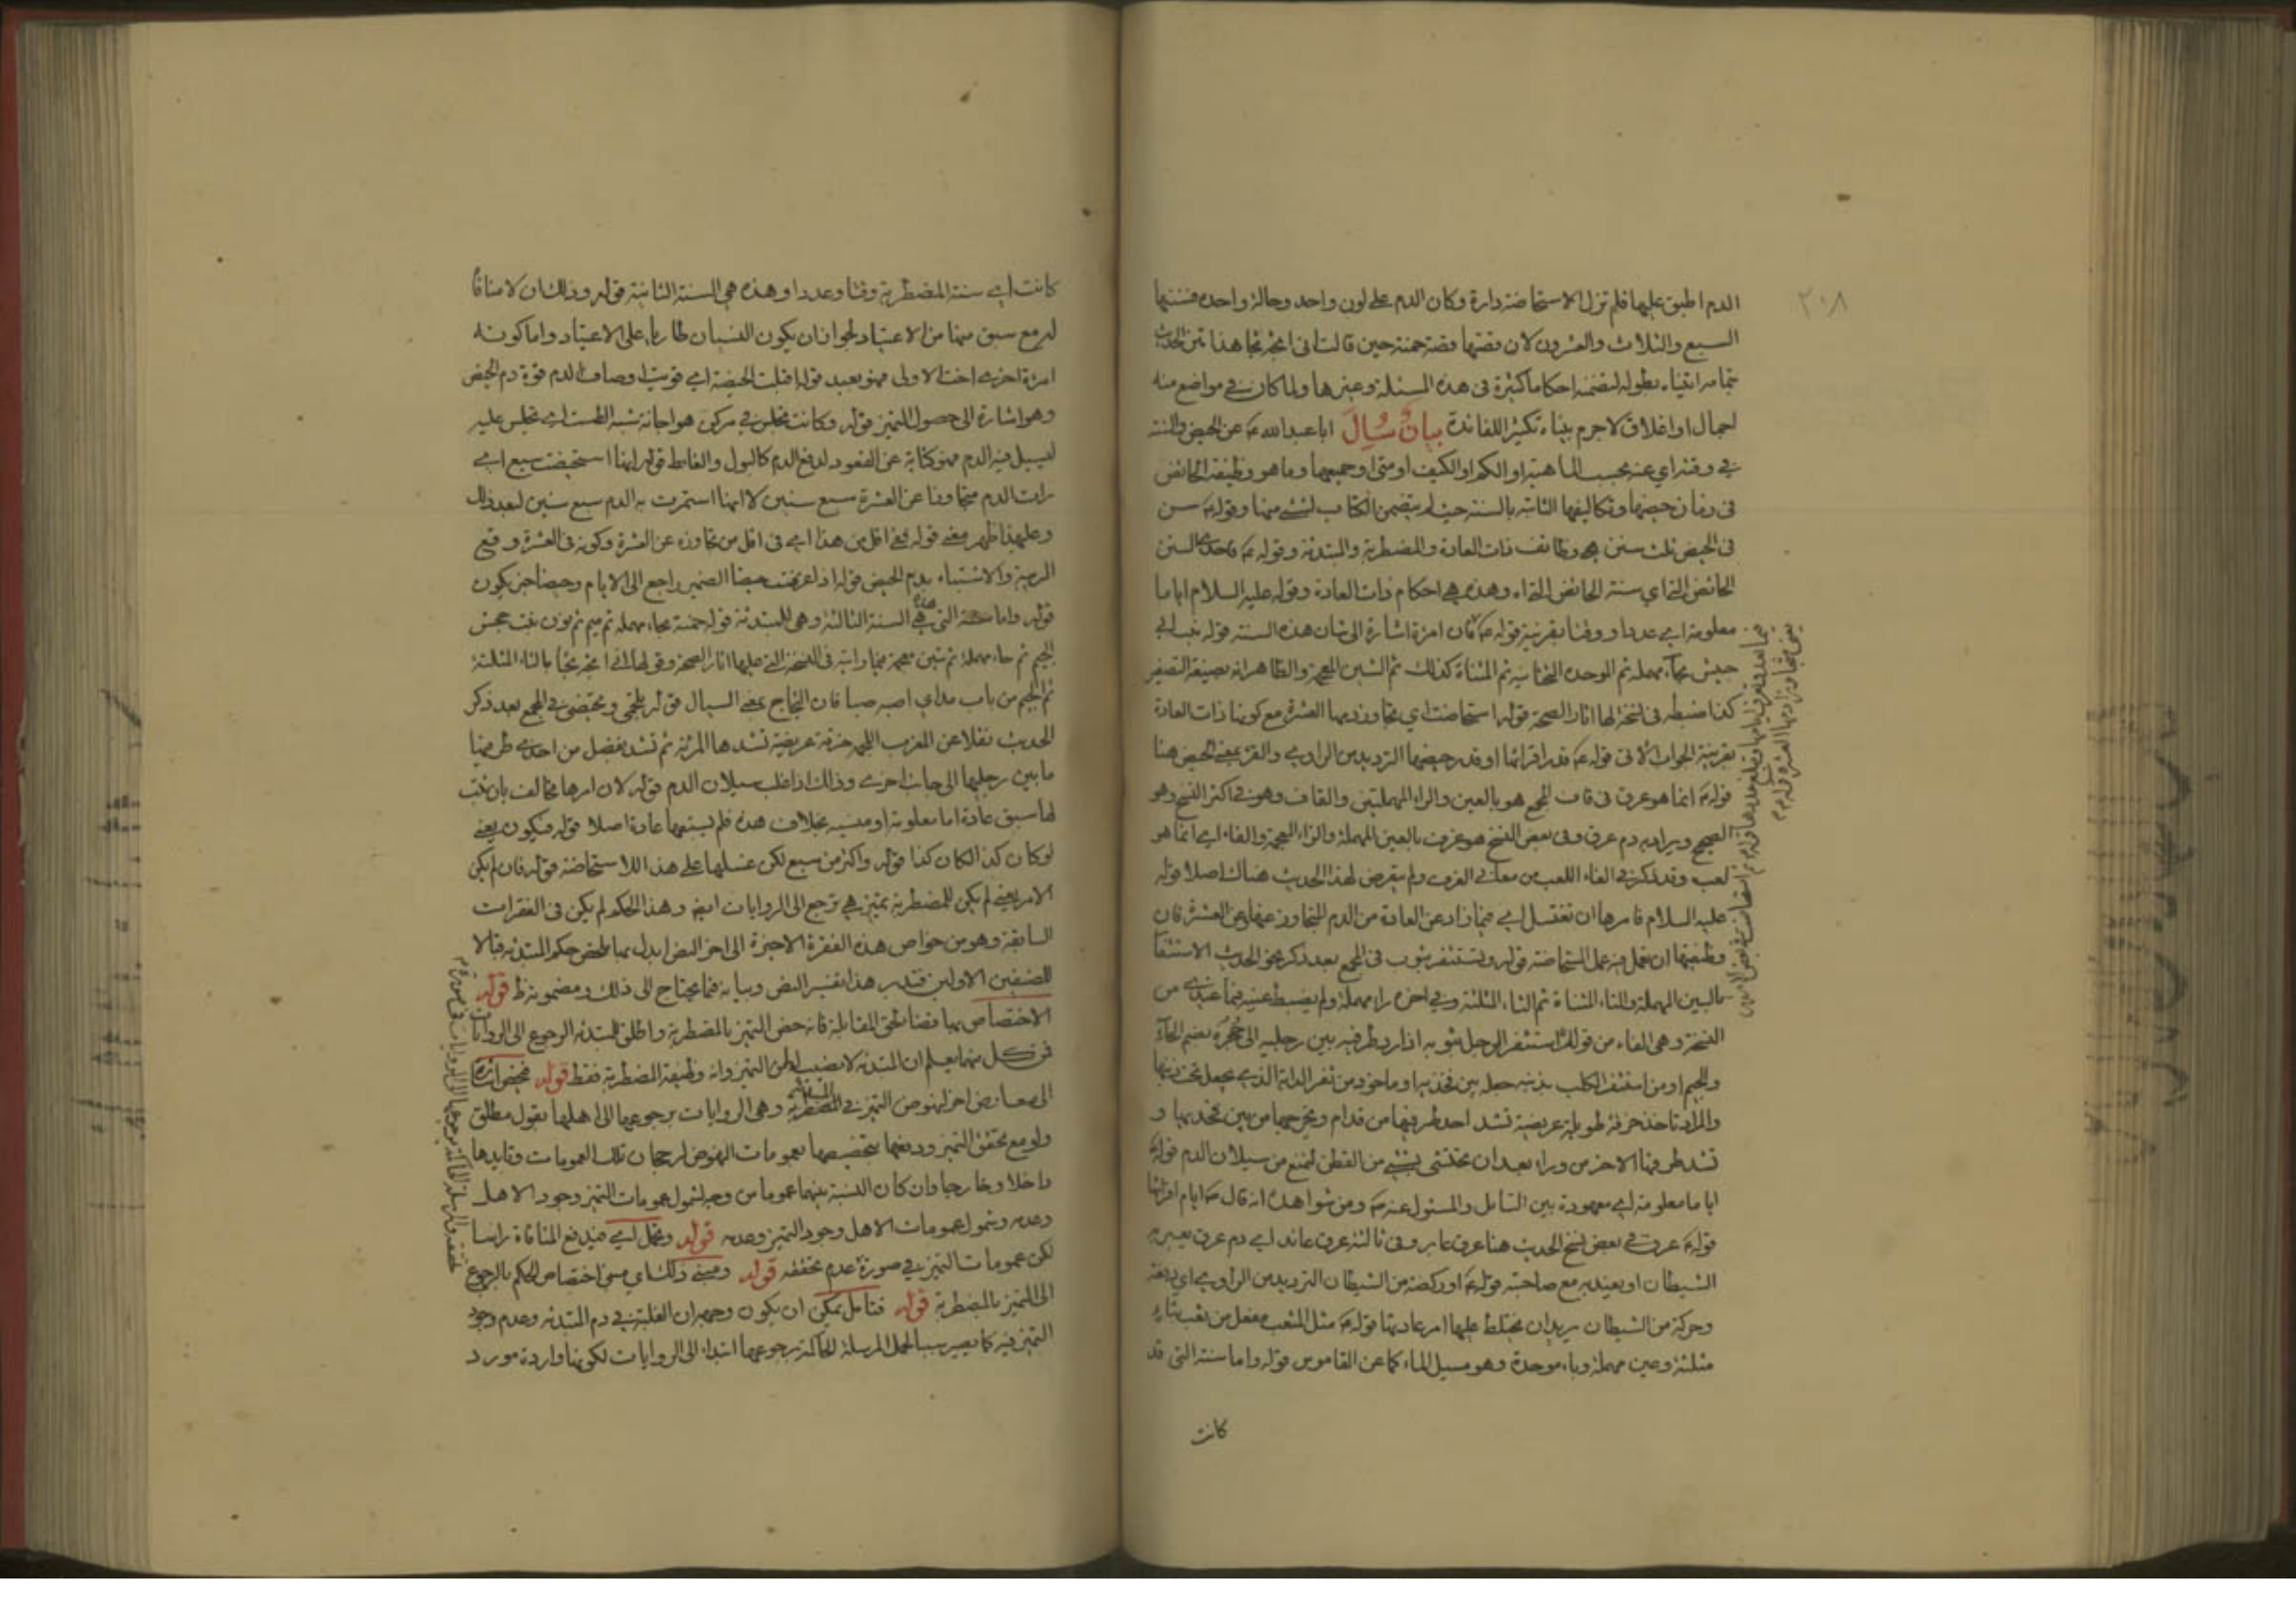 ٢٠٨
الدم اطبق عليها فلم تزل الاستحاضة دارة وكان الدم على لون واحد وحالة واحدة فسنتها
السبع والثلاث والعشرون لان قصتها قصة حمنة حين قالت انى اثجه ثجا هذا متن الحديث
بتمامه اتيناه بطوله لتضمنه احكاما كثيرة فى هذه المسئلة وغيرها ولما كان فى مواضع منه
اجمال او اغلاق لاجرم بيناه تكثيرا للفائدة بيان سُئِلَ ابا عبد الله عن الحيض والسنة
فى وقته اي عنه بحسب الماهية او الكم او الكيف او متى او جميعها وما هو وظيفة الحائض
فى زمان حيضها وتكاليفها الثابتة بالسنة حيث لم يتضمن الكتاب لشئ منها وقوله سن
فى الحيض ثلث سنن هى وظائف ذات العادة والمضطربة والمبتدئة وقوله احدى السنن
الحائض التى اي سنة الحائض التى اه وهذه هى احكام ذات العادة وقوله عليه السلام اياما
معلومة اى عددا ووقتا بقرينة قوله فان امرأة اشارة الى شان هذه السنة قوله بنت ابى
حبيش بحاء مهملة ثم الموحدة التحتانية ثم المثناة كذلك ثم الشين المعجمة والظاهر انه بصيغة التصغير
كذا ضبطه فى نسخة لها اثار الصحة قوله استحاضت اي تجاوز دمها العشرة مع كونها ذات العادة
بقرينة الجواب الاتى قوله قدر اقرائها او قدر حيضها الترديد من الراوى والقرء بمعنى الحيض هنا
قوله انما هو عرق فى قاف المجمع هو بالعين والراء المهملتين والقاف وهو فى اكثر النسخ وهو
الصحيح ويراد به دم عرق وفى بعض النسخ هو عزف بالعين المهملة والزاء المعجمة والفاء اى انما هو
لعب وقد ذكر فى الفاء اللعب من معانى العزف ولم يتعرض لهذا الحديث هناك اصلا قوله
عليه السلام فامرها ان تغتسل اى فيما زاد عن العادة من الدم المتجاوز عنها وعن العشرة فان
وظيفتها ان تعمل فيه عمل المستحاضة قوله وتستثفر بثوب فى المجمع بعد ذكر نحو الحديث الاستثفار
بالسين المهملة والتاء المثناة ثم الثاء المثلثة وفى اخره راء مهملة ولم يضبط عينه فيما عندى من
النسخة وهى الفاء من قولك استثفر الرجل بثوبه اذا رد طرفيه بين رجليه الى حُجزة بضم الحاء
والجيم او من استثفر الكلب بذنبه جعله بين فخذيه او ماخوذ من ثفر الدابة الذى يجعل تحت ذنبها
والمراد تاخذ خرقة طويلة عريضة تشد احد طرفيها من قدام وتخرجها من بين فخذيها و
تشد طرفها الاخر من وراء بعد ان تحتشى بشئ من القطن لتمنع من سيلان الدم قوله
اياما معلومة اى معهودة بين السائل والمسئول عنه ومن شواهده انه قال ايام اقرائها
قوله عرق فى بعض نسخ الحديث هنا عرق عابر وفى ثالثة عرق عاند اى دم عرق يعبر به
الشيطان او يعيد به مع صاحبته قوله او ركضة من الشيطان الترديد من الراوى اي دفعة
وحركة من الشيطان يريد ان يختلط عليها امر عادتها قوله مثل المثعب مفعل من ثعب بثاء
مثلثة وعين مهملة وباء موحدة وهو مسيل الماء كما عن القاموس قوله واما سنة التى قد
كانت
كانت اى سنة المضطربة وقتا وعددا وهذه هى السنة الثانية قوله وذلك ان لا منافاة
له مع سبق منها من الاعتياد لجواز ان يكون النسيان طارياً على الاعتياد واما كونه
امرأة اخرى اخت الاولى فهو بعيد قوله اقبلت الحيضة اى قويت اوصاف الدم قوة دم الحيض
وهو اشارة الى حصول التميز قوله وكانت تجلس فى مركن هو اجانة شبه الطست اى تجلس عليه
ليسيل فيه الدم فهو كناية عن القعود لدفع الدم كالبول والغائط قوله انها استحيضت سبع اى
رات الدم متجاوزا عن العشرة سبع سنين لا انها استمرت به الدم سبع سنين لبعد ذلك
وعليهذا ظهر معنى قوله ففى اقل من هذا اى فى اقل من تجاوزه عن العشرة وكونه فى العشرة وقع
الريبة والاشتباه بدم الحيض قوله اذا عرفت حيضا الضمير راجع الى الايام وحيضا خبر يكون
قوله واما سنة التى هذه هى السنة الثالثة وهى للمبتدئة قوله حمنة بحاء مهملة ثم ميم ثم نون بنت جحش
بالجيم ثم حاء مهملة ثم شين معجمة فيما رايته فى النسخة التى عليها اثار الصحة وقولها انى اثجه ثجا بالثاء المثلثة
ثم الجيم من باب مد اي اصبه صبا فان الثجاج بمعنى السيال قوله تلجمى وتحيضى فى المجمع بعد ذكر
الحديث نقلا عن المغرب اللجمة خرقة عريضة تشدها المرئة ثم تشد بفضل من احدى طرفيها
ما بين رجليها الى جانب اخرى وذلك اذا غلب سيلان الدم قوله لان امرها مخالف بان ثبت
لها سبق عادة اما معلومة او منسية بخلاف هذه فلم يسبقها عادة اصلا قوله فيكون يعنى
لو كان كذا لكان كذا قوله واكثر من سبع لكن غسلها على هذا للاستحاضة قوله فان لم يكن
الامر يعنى لم يكن للمضطربة تميز هى ترجع الى الروايات ايض وهذا الحكم لم يكن فى الفقرات
السابقة وهو من خواص هذه الفقرة الاخيرة الى اخر النص ابدل بما يخص حكم المبتدئة قبالا
للصنفين الاولين فتدبر هذا تفسير النص وبيانه فيما يحتاج الى ذلك ومضمونه ظ قوله
الاختصاص بها قضاء لحق المقابلة فانه خص التميز بالمضطربة واطلق للمبتدئة الرجوع الى الروايات
فمن كل منهما يعلم ان المبتدئة لا نصيب لها من التميز وانه وظيفة المضطربة فقط قوله
الى معارض اخر لنصوص التميز فى المضطربة وهى الروايات برجوعها الى اهلها بقول مطلق
ولو مع تحقق التميز ودفعها بتخصيصها بعمومات النصوص لرجحان تلك العمومات وتايدها
داخلا وخارجا وان كان النسبة بينهما عموما من وجه لشمول عمومات التميز وجود الاهل
وعدمه وشمول عمومات الاهل وجود التميز وعدمه قوله وتحمل اى فيدفع المنافاة راسا
لكن عمومات التميز فى صورة عدم تحققه قوله ومبنى ذلك اي مبنى اختصاص الحكم بالرجوع
الى التميز بالمضطربة قوله فتامل يمكن ان يكون وجهه ان الغلبة فى دم المبتدئة وعدم وجود
التميز فيه كما يصير سببا لحمل المرسلة الحاكمة برجوعها ابتداء الى الروايات لكونها واردة مورد